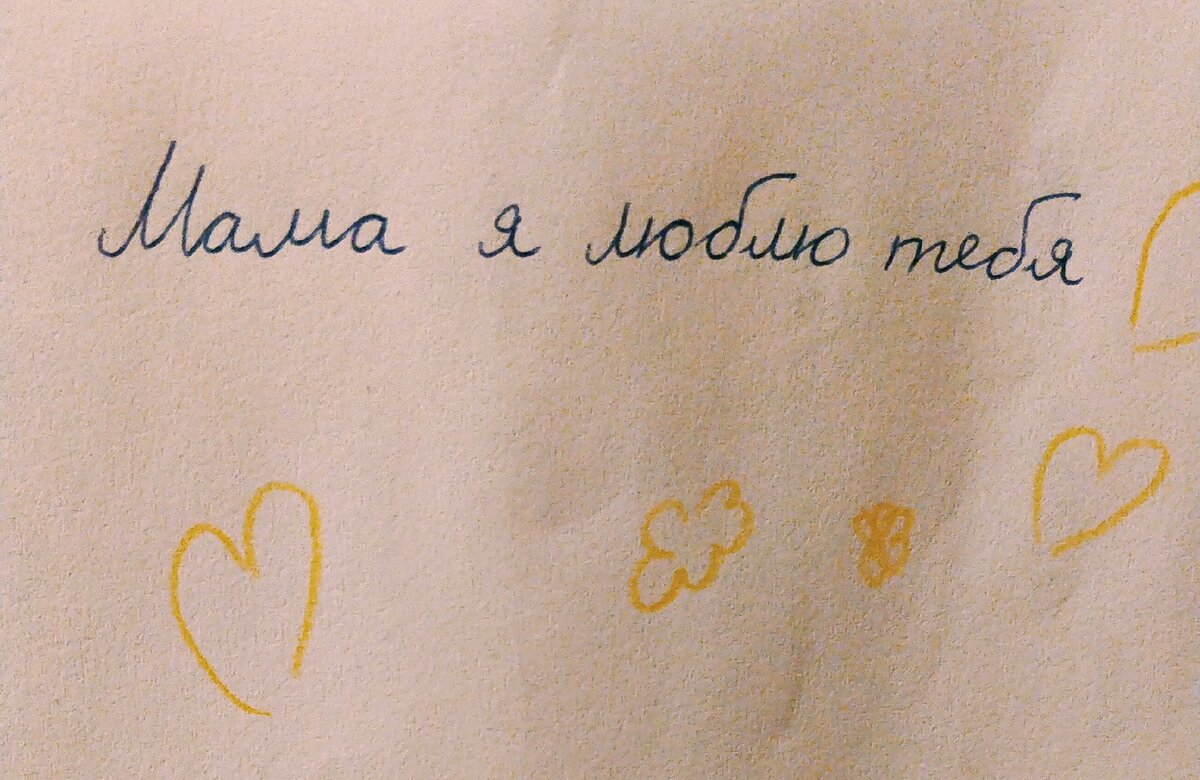 Мама я люблю тебя